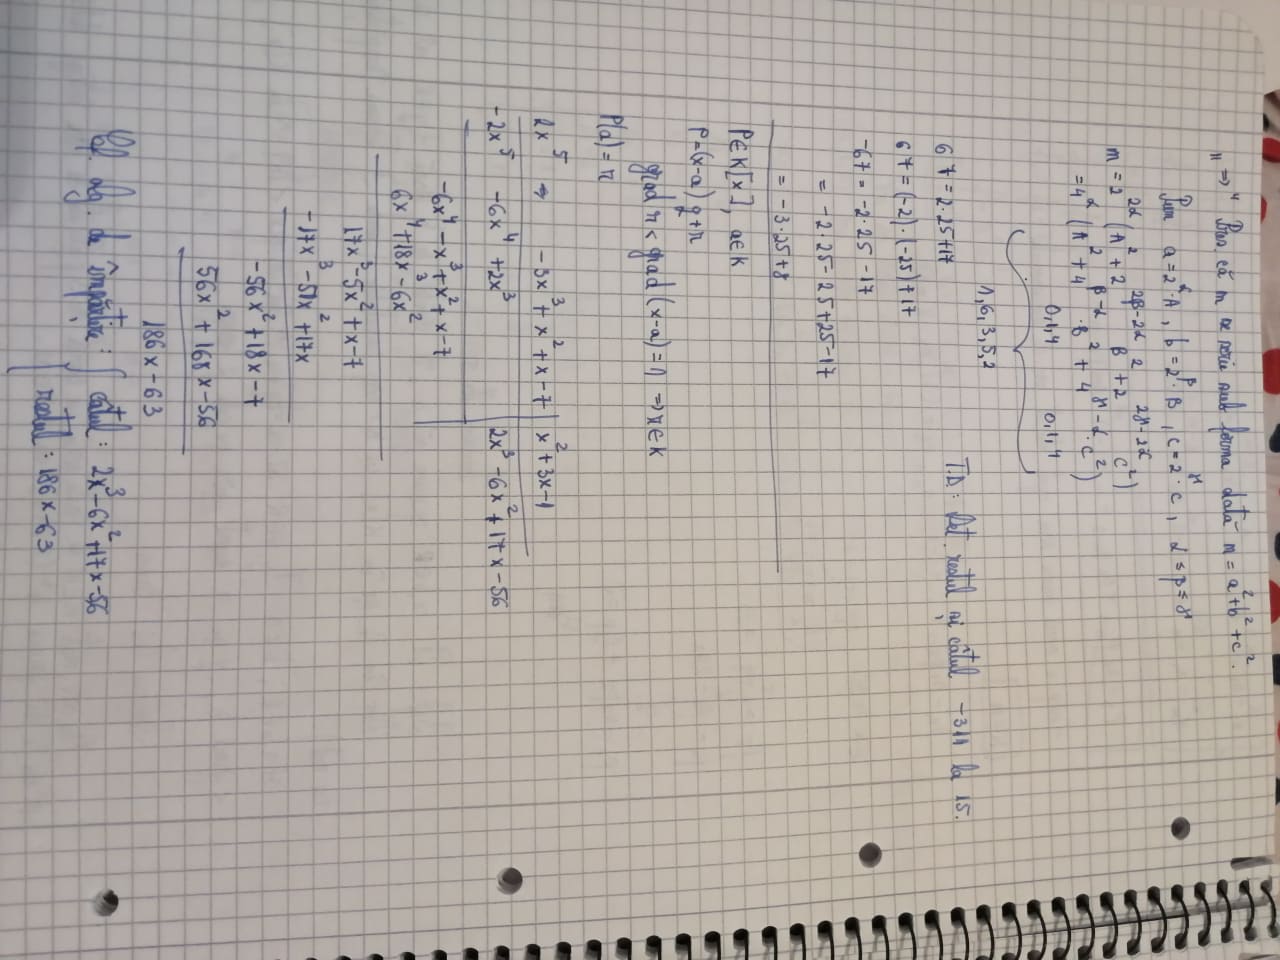 "⇒" Pres. că m se scrie sub forma dată m = a² + b² + c².
Pun a = 2^α · A, b = 2^β · B, c = 2^γ · C, α ≤ β ≤ γ
m = 2^2α (A² + 2^2β-2α B² + 2^2γ-2α C²)
= 4^α (A² + 4^β-α · B² + 4^γ-α · C²)
0,1,4 0,1,4
1,6,3,5,2
T.D: Det. restul și câtul -311 la 15.
67 = 2·25+17
67 = (-2)·(-25)+17
-67 = -2·25 -17
= -2·25 -25+25-17
= -3·25+8
P∈K[x], a∈K
P=(x-a)q+r
grad r < grad (x-a) = 1 ⇒ r∈K
P(a) = r
2x⁵ -3x³ + x² + x - 7 | x² + 3x - 1
-2x⁵ -6x⁴ +2x³ 2x³ - 6x² + 17x - 56
-6x⁴ - x³ + x² + x - 7
6x⁴ + 18x³ - 6x²
17x³ - 5x² + x - 7
-17x³ - 51x² + 17x
-56x² + 18x - 7
56x² + 168x - 56
186x - 63
cf. alg. de împărțire: { câtul: 2x³ - 6x² + 17x - 56
restul: 186x - 63